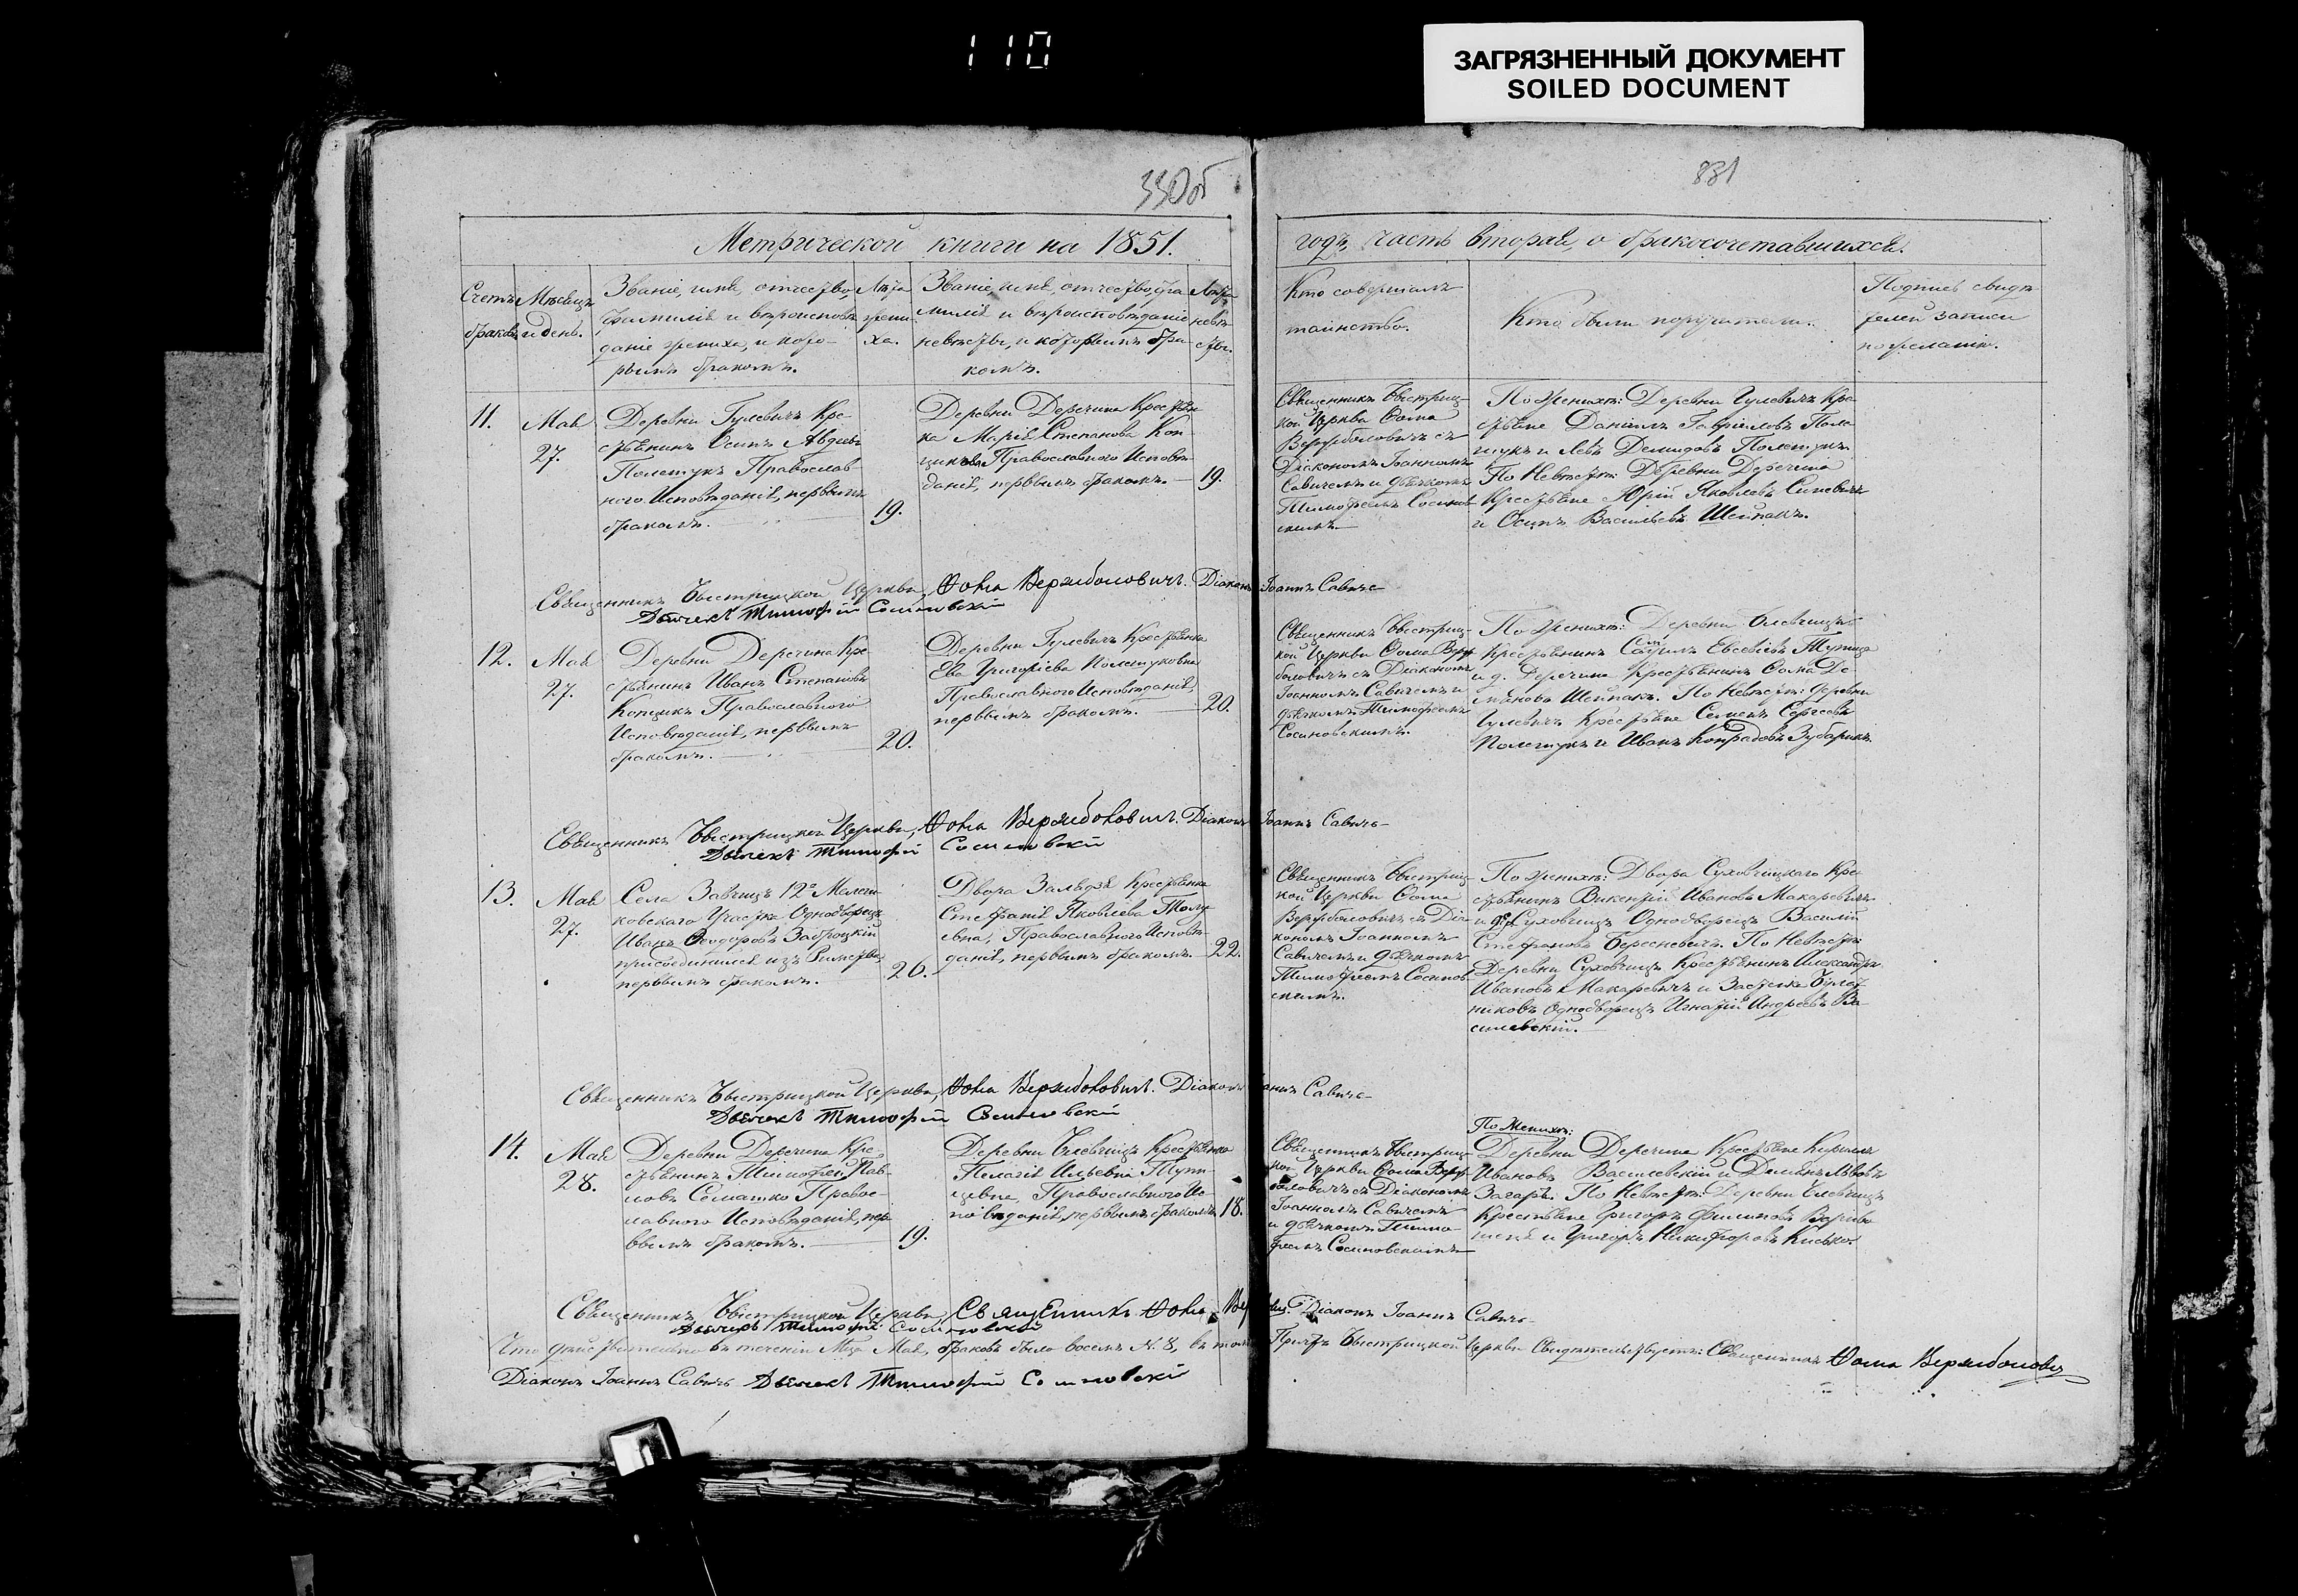 110
ЗАГРЯЗНЕННЫЙ ДОКУМЕНТ
SOILED DOCUMENT
330об
331
Метрической книги на 1851.
годъ, часть вторая, о бракосочетавшихся.
Счетъ
браковъ
Мѣсяцъ
и день.
Званіе, имя, отчество,
фамилія и вѣроисповѣ
даніе жениха, и кото-
рымъ бракомъ.
Лѣта
жени-
ха.
Званіе, имя, отчество, фа
милія и вѣроисповѣданіе
невѣсты, и которымъ бра
комъ.
Лѣта
невѣ-
сты.
Кто совершалъ
таинство.
Кто были поручители.
Подпись свидѣ
телей записи
по желанію.
11.
Мая
27.
Деревни Гулевичъ Кре-
стьянинъ Осипъ Авдеевъ
Полещукъ Православ-
ного Исповѣданія, первымъ
бракомъ.
19.
Деревни Деречина Крестьян
ка Марія Степанова Коп-
щикова Православного Исповѣ-
данія, первымъ бракомъ.
19.
Священникъ Быстриц-
кой Церкви Ѳома
Вержболовичъ съ
Діакономъ Іоанномъ
Савичемъ и дьячкомъ
Тимофеемъ Сосинов
скимъ
По Женихѣ: Деревни Гулевичъ Кре-
стьяне Даніилъ Гавріиловъ Поле
щукъ и Левъ Демидовъ Полещукъ.
По Невѣстѣ: Деревни Деречина
Крестьяне Юрій Яковлевъ Синевичъ
и Осипъ Васильевъ Шейпакъ.
Священникъ Быстрицкой Церкви, Ѳома Вержболовичъ. Діаконъ Іоаннъ Савичъ
Дьячекъ Тимофій Сосиновскій
12.
Мая
27.
Деревни Деречина Кре-
стьянинъ Иванъ Степановъ
Копщикъ Православного
Исповѣданія, первымъ
бракомъ.
20.
Деревни Гулевичъ Крестьянка
Ева Григоріева Полещуковна
Православного Исповѣданія,
первымъ бракомъ.
20.
Священникъ Быстриц-
кой Церкви Ѳома Верж
боловичъ съ Діакономъ
Іоанномъ Савичемъ и
дьячкомъ Тимофеемъ
Сосиновскимъ.
По Женихѣ: Деревни
Крестьянинъ Евсеевъ
и д. Деречина Крестьянинъ Ѳома
Шейпакъ. По Невѣстѣ: деревни
Гулевичъ Крестьяне Семенъ Сергеевъ
Полещукъ и Иванъ Конрадовъ Зубарикъ.
Священникъ Быстрицкой Церкви, Ѳома Вержболовичъ. Діаконъ Іоаннъ Савичъ
Дьячекъ Тимофій Сосиновскій
13.
Мая
27.
Села 12º
ковскаго Участка Однодворецъ
Иванъ Ѳеодоровъ Заброцкій
присоединился изъ Римства,
первымъ бракомъ.
26.
Двора Крестьянка
Стефанія Яковлева
Православного Исповѣ-
данія, первымъ бракомъ.
22.
Священникъ Быстриц
кой Церкви Ѳома
Вержболовичъ съ Діа
кономъ Іоанномъ
Савичемъ и дьячкомъ
Тимофеемъ Сосинов
скимъ.
По Женихѣ: Двора Суховчицкаго Кре-
стьянинъ Викентій Ивановъ Макаревичъ
и Суховчицъ Однодворецъ Василій
Стефановъ Бересневичъ. По Невѣстѣ:
Деревни Суховчицъ Крестьянинъ Александръ
Ивановъ Макаревичъ и Застенка Булат
никовъ Однодворецъ Игнатій Андреевъ Ва-
силевскій.
Священникъ Быстрицкой Церкви, Ѳома Вержболовичъ. Діаконъ Іоаннъ Савичъ
Дьячекъ Тимофій Сосиновскій
14.
Мая
28.
Деревни Деречина Кре
стьянинъ Тимофей Пав-
ловъ Семашко Правос-
лавного Исповѣданія, пер
вымъ бракомъ.
19.
Деревни Крестьянка
Пелагія Ильевна
Православного Ис
повѣданія, первымъ бракомъ
18.
Священникъ Быстриц
кой Церкви Ѳома Верж
боловичъ съ Діакономъ
Іоанномъ Савичемъ
и дьячкомъ Тимо
феемъ Сосиновскимъ
По Женихѣ:
Деревни Деречина Крестьяне Кириллъ
Ивановъ Василевскій и Львовъ
По Невѣстѣ: Деревни
Крестьяне Григорій Филиповъ
и Григорій Никифоровъ Кисько.
Священникъ Быстрицкой Церкви, Священникъ Ѳома Діаконъ Іоаннъ Савичъ
Дьячекъ Тимофій Сосиновскій
Что дѣйствительно въ теченіи Мца Мая, браковъ было восемъ N. 8, въ томъ Причтъ Быстрицкой Церкви Свидѣтельствуетъ: Священникъ Ѳома Вержболовичъ
Діаконъ Іоаннъ Савичъ Дьячекъ Тимофій Сосиновскій